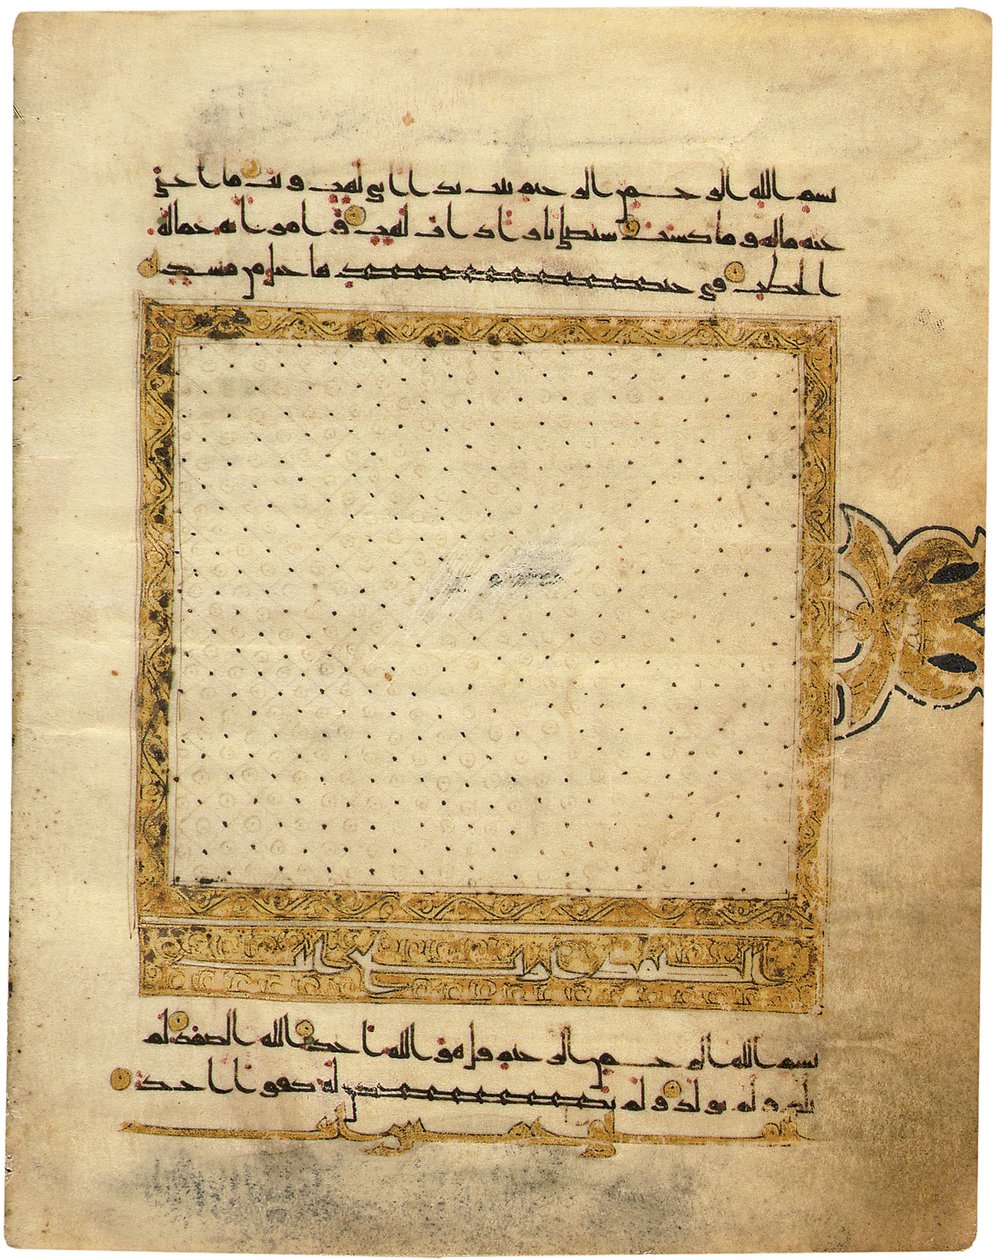 بسم الله الرحمن الرحيم تبت يدا ابي لهب وتب ما اغنى
عنه ماله وما كسب سيصلى نارا ذات لهب وامراته حمالة
الحطب في جيدها حبل من مسد
الصمد اربع ايات
بسم الله الرحمن الرحيم قل هو الله احد الله الصمد لم
يلد ولم يولد ولم يكن له كفوا احد
الفلق خمس ايات